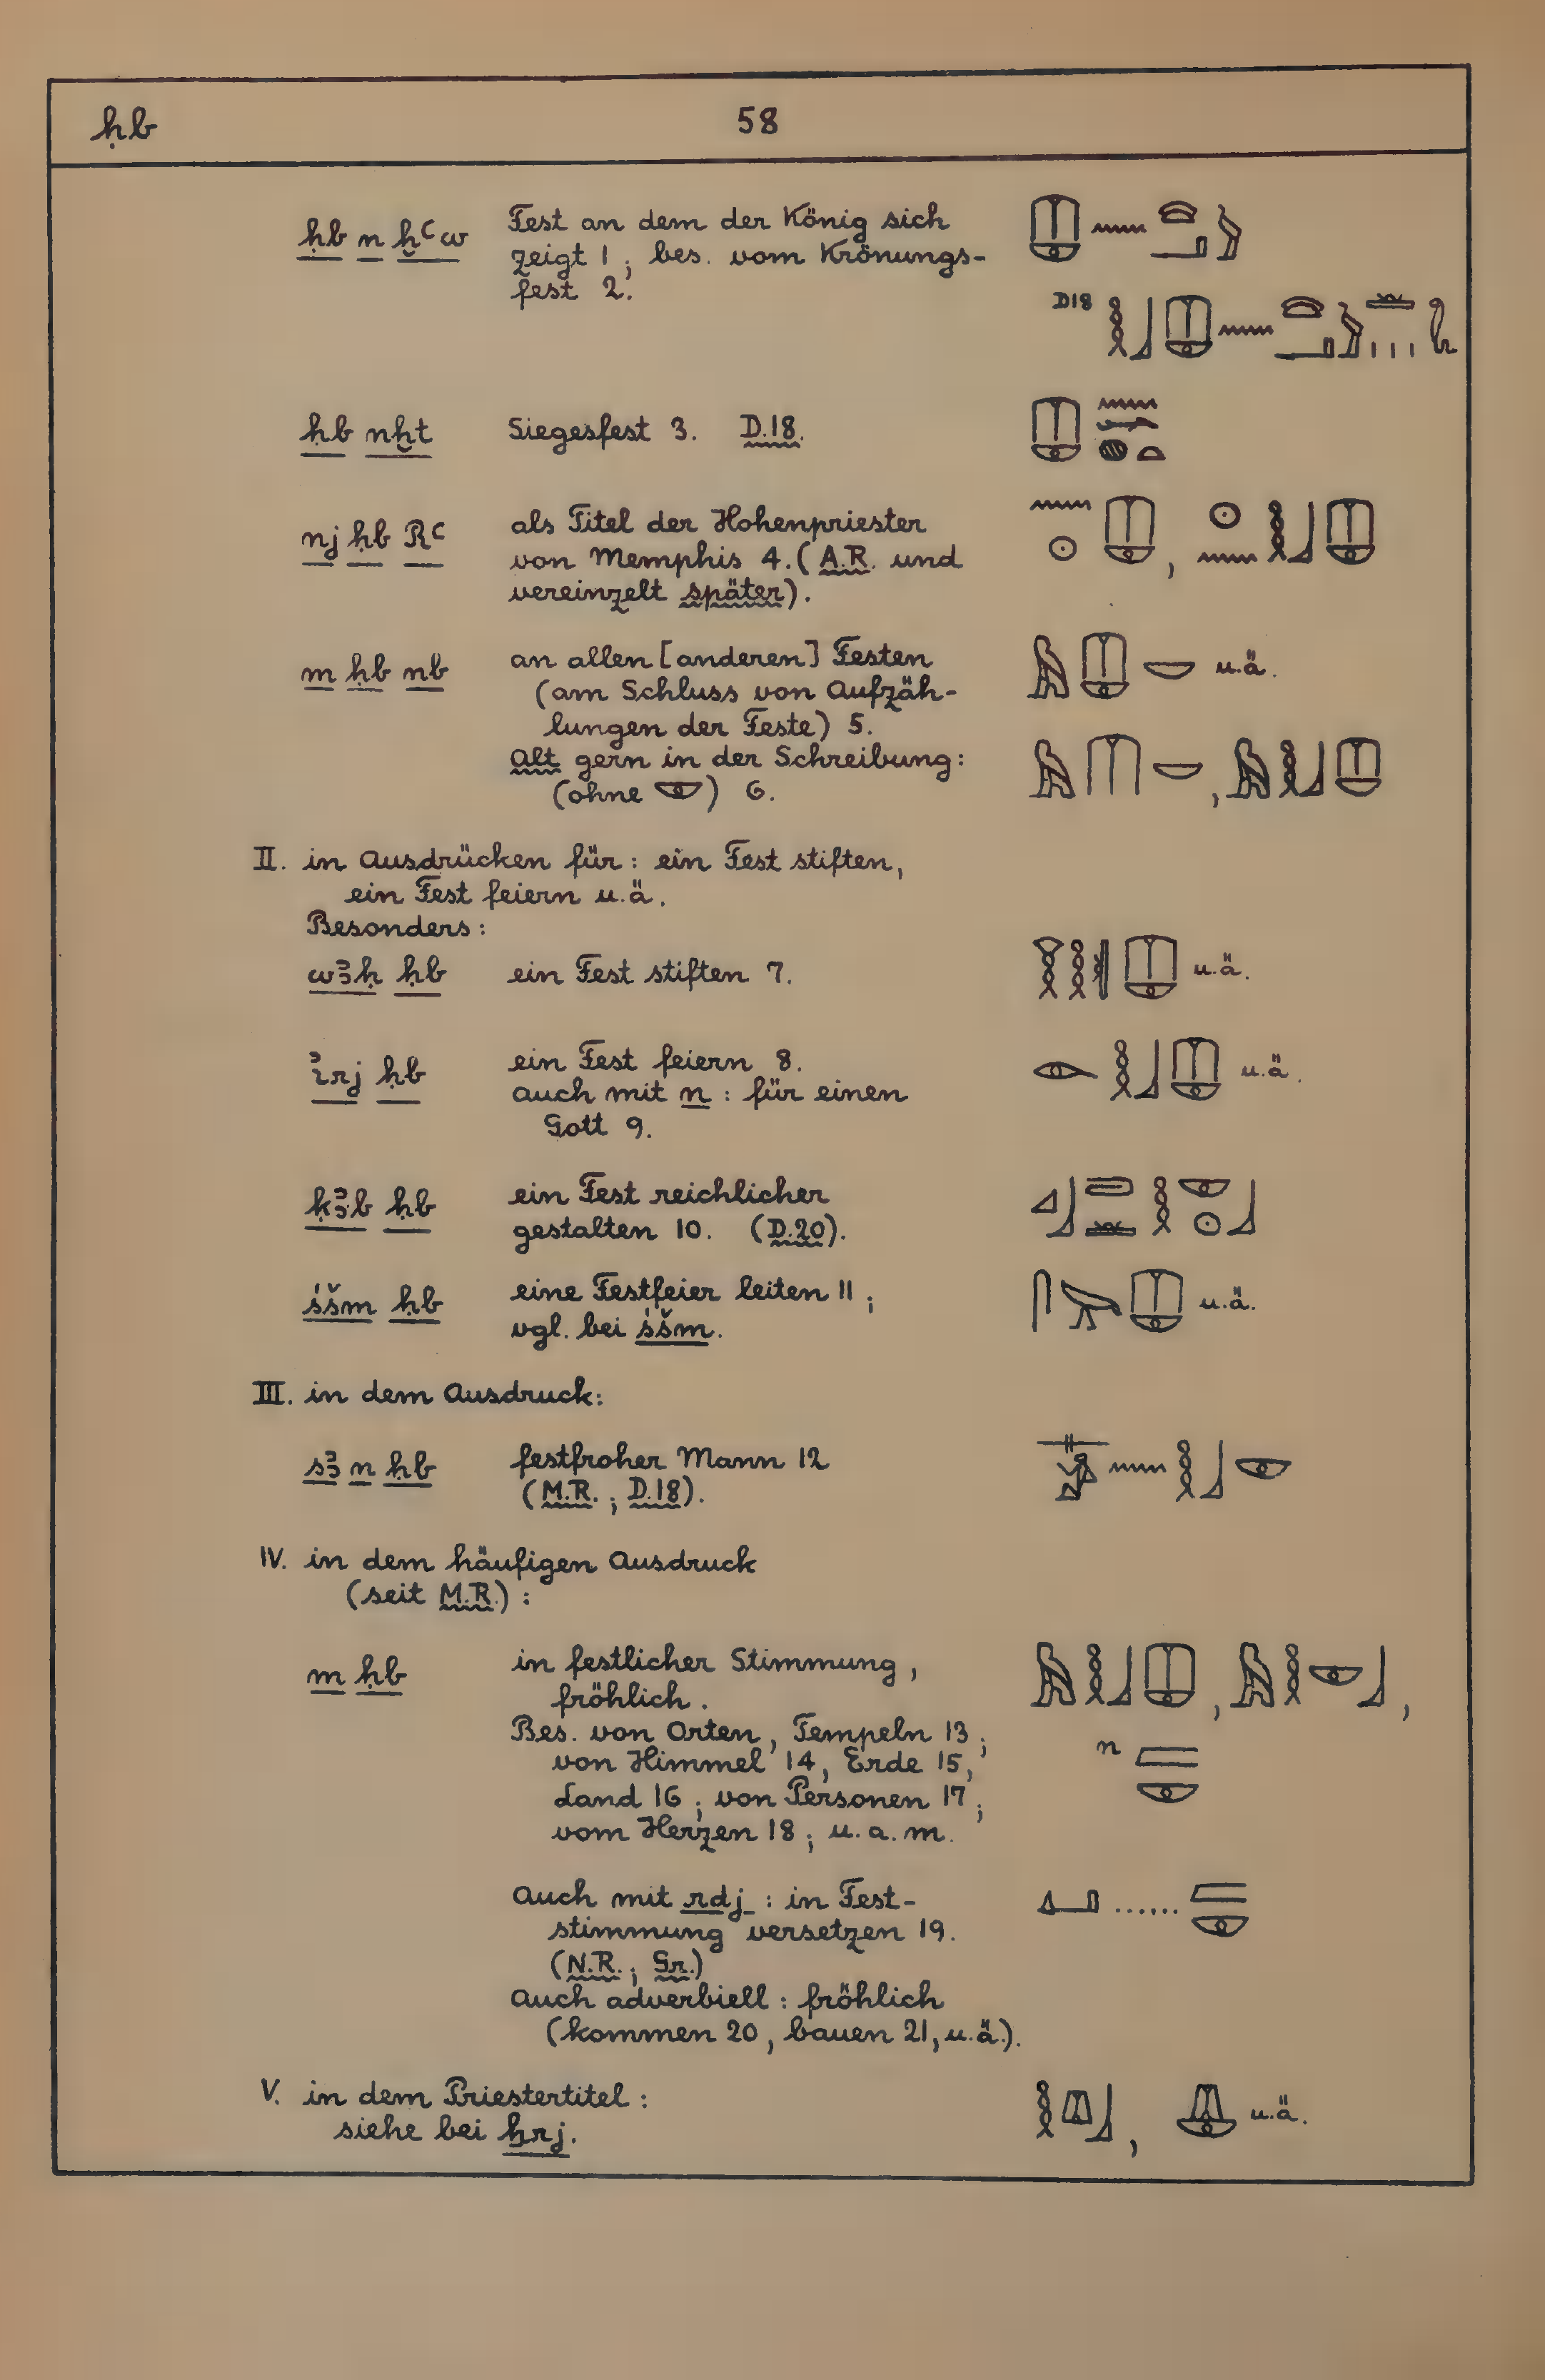 ḥb 58
ḥb n ḫꜥw Fest an dem der König sich
zeigt 1; bes. vom Krönungs-
fest 2.
D18
ḥb nḫt Siegesfest 3. D.18.
nj ḥb Rꜥ als Titel der Hohenpriester
von Memphis 4. (A.R. und
vereinzelt später).
m ḥb nb an allen [anderen] Festen u.ä.
(am Schluss von Aufzäh-
lungen der Feste) 5.
Alt gern in der Schreibung:
(ohne 𓎱) 6.
II. in Ausdrücken für: ein Fest stiften,
ein Fest feiern u.ä.
Besonders:
wꜣḥ ḥb ein Fest stiften 7. u.ä.
ı͗rj ḥb ein Fest feiern 8. u.ä.
auch mit n: für einen
Gott 9.
ḳꜣb ḥb ein Fest reichlicher
gestalten 10. (D.20).
śšm ḥb eine Festfeier leiten 11; u.ä.
vgl. bei śšm.
III. in dem Ausdruck:
sꜣ n ḥb festfroher Mann 12
(M.R.; D.18).
IV. in dem häufigen Ausdruck
(seit M.R.):
m ḥb in festlicher Stimmung,
fröhlich.
Bes. von Orten, Tempeln 13;
von Himmel 14, Erde 15, n
Land 16; von Personen 17;
vom Herzen 18; u.a.m.
Auch mit rdj: in Fest- ......
stimmung versetzen 19.
(N.R.; Gr.)
Auch adverbiell: fröhlich
(kommen 20, bauen 21, u.ä.).
V. in dem Priestertitel:
siehe bei ẖrj. u.ä.